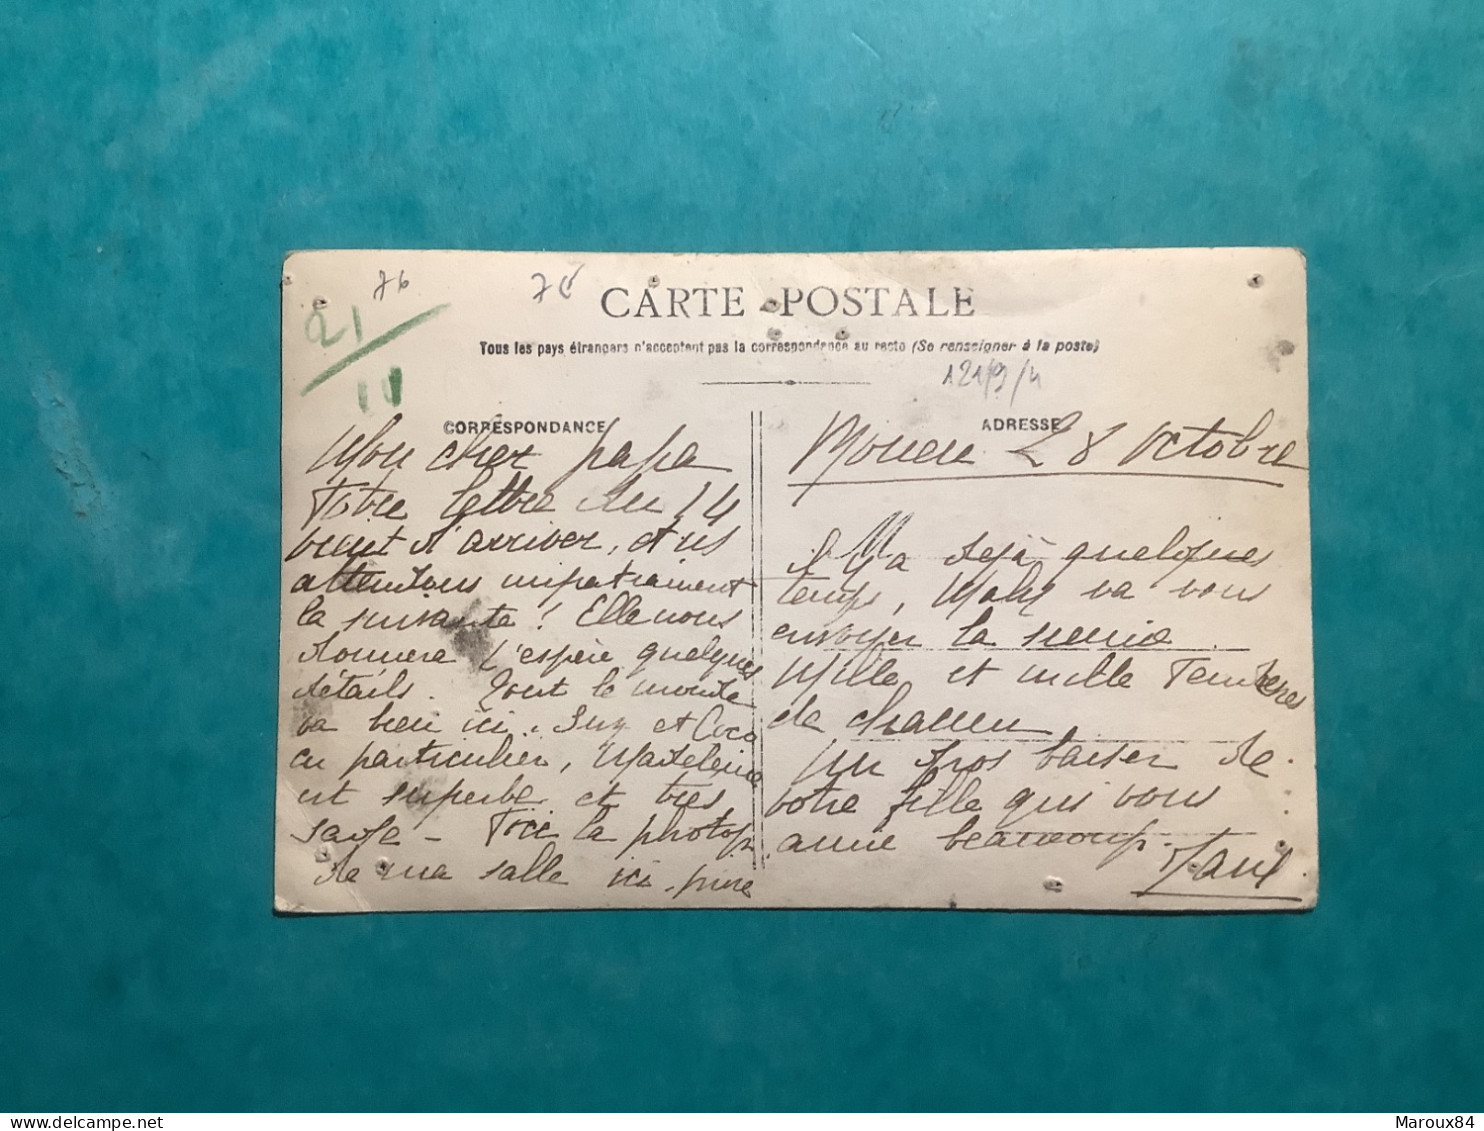 76
76
21
11
CARTE POSTALE
Tous les pays étrangers n'acceptent pas la correspondance au recto (Se renseigner à la poste)
CORRESPONDANCE
Mon cher papa
Votre lettre du 14
vient d'arriver, et ns
attendons impatiemment
la suivante ! Elle nous
donnera j'espère quelques
détails. Tout le monde
va bien ici. Suz et Coco
en particulier, Madeleine
est superbe et très
sage - Voici la photogr
de ma salle ici, prise
ADRESSE
Rouen 28 Octobre
il y a déjà quelques
temps, va vous
envoyer la sienne
Mille et mille tendresses
de chacun
Un gros baiser de
votre fille qui vous
aime beaucoup.
Maroux84